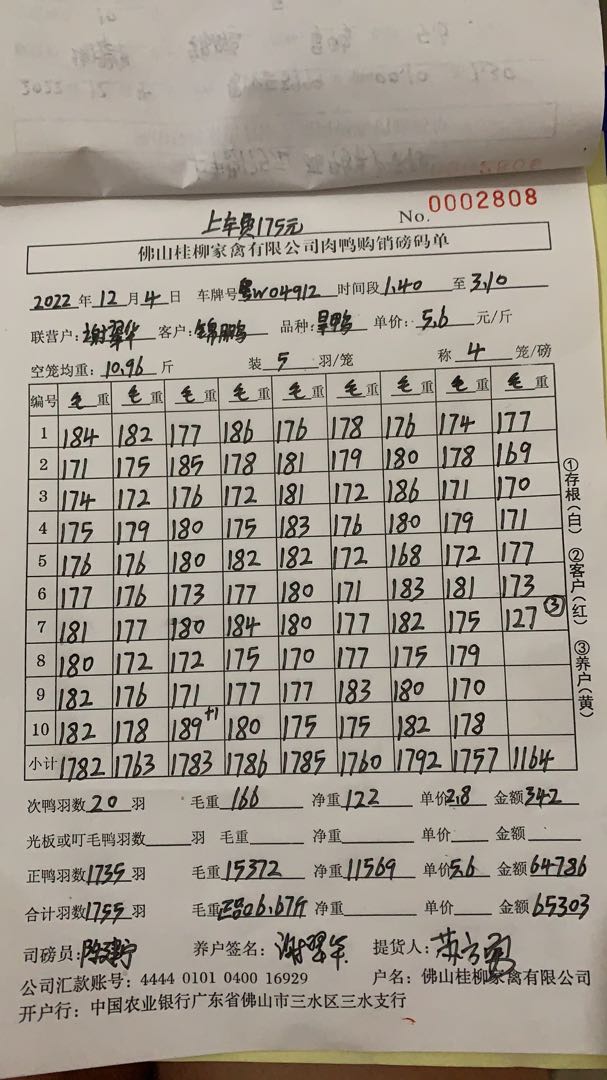 0002808
上车费175元 No. 0002808
佛山桂柳家禽有限公司肉鸭购销磅码单
2022年12月4日 车牌号粤W04912 时间段1.40至3.10
联营户:谢翠华 客户:锦鹏 品种:旱鸭 单价:5.6元/斤
空笼均重:10.96斤 装5羽/笼 称4笼/磅
编号 毛重 毛重 毛重 毛重 毛重 毛重 毛重 毛重 毛重
1 184 182 177 186 176 178 176 174 177
2 171 175 185 178 181 179 180 178 169
3 174 172 176 172 181 172 186 171 170
4 175 179 180 175 183 176 180 179 171
5 176 176 180 182 182 172 168 172 177
6 177 176 173 177 180 171 183 181 173
7 181 177 180 184 180 177 182 175 127③
8 180 172 172 175 170 177 175 179
9 182 176 171 177 177 183 180 170
10 182 178 189+1 180 175 175 182 178
小计 1782 1763 1783 1786 1785 1760 1792 1757 1164
①存根(白) ②客户(红) ③养户(黄)
次鸭羽数20羽 毛重166 净重122 单价2.8 金额342
光板或叮毛鸭羽数 羽 毛重 净重 单价 金额
正鸭羽数1735羽 毛重15372 净重11569 单价5.6 金额64786
合计羽数1755羽 毛重正品6.67斤 净重 单价 金额65303
司磅员: 养户签名:谢翠华 提货人:
公司汇款账号:4444 0101 0400 16929 户名:佛山桂柳家禽有限公司
开户行:中国农业银行广东省佛山市三水区三水支行